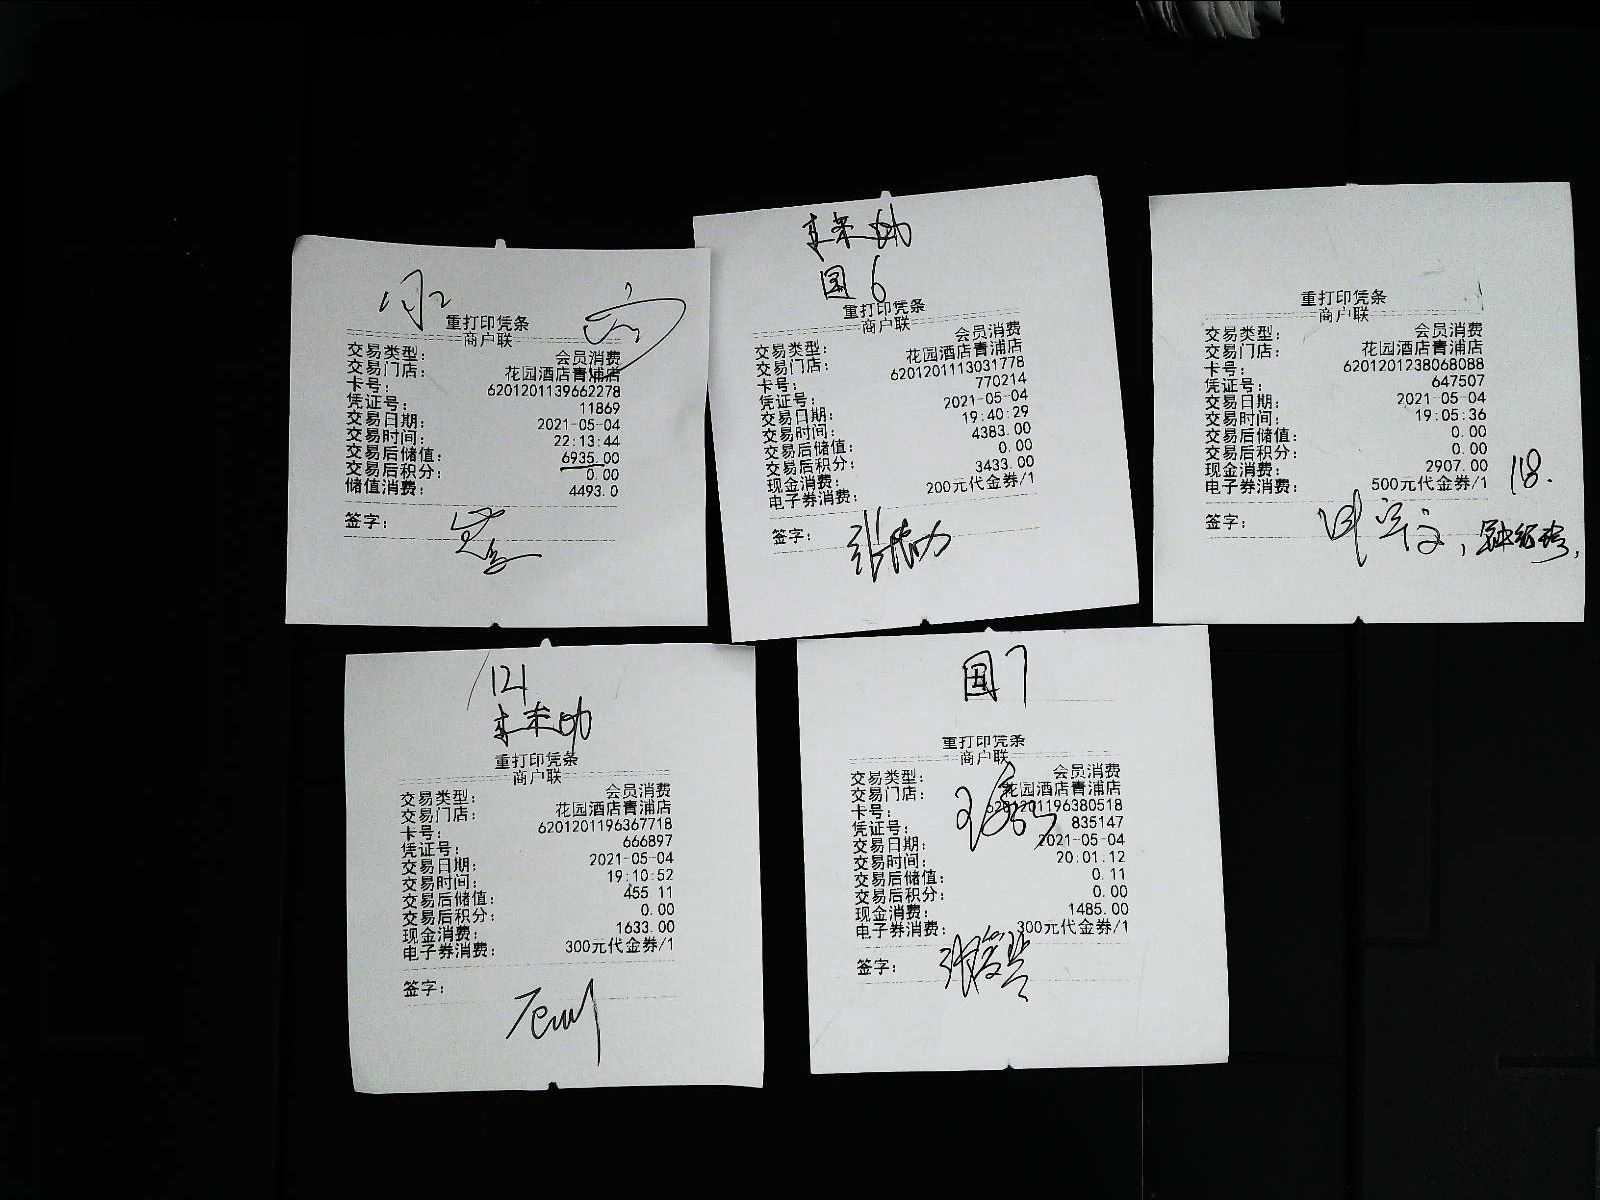 重打印凭条
商户联
交易类型： 会员消费
交易门店： 花园酒店青浦店
卡号： 6201201139662278
凭证号： 11869
交易日期： 2021-05-04
交易时间： 22:13:44
交易后储值： 6935.00
交易后积分： 0.00
储值消费： 4493.0
签字：
国6
重打印凭条
商户联
交易类型： 会员消费
交易门店： 花园酒店青浦店
卡号： 6201201113031778
凭证号： 770214
交易日期： 2021-05-04
交易时间： 19:40:29
交易后储值： 4383.00
交易后积分： 0.00
现金消费： 3433.00
电子券消费： 200元代金券/1
签字：
重打印凭条
商户联
交易类型： 会员消费
交易门店： 花园酒店青浦店
卡号： 6201201238068088
凭证号： 647507
交易日期： 2021-05-04
交易时间： 19:05:36
交易后储值： 0.00
交易后积分： 0.00
现金消费： 2907.00
电子券消费： 500元代金券/1
118.
签字：
121
重打印凭条
商户联
交易类型： 会员消费
交易门店： 花园酒店青浦店
卡号： 6201201196367718
凭证号： 666897
交易日期： 2021-05-04
交易时间： 19:10:52
交易后储值： 455.11
交易后积分： 0.00
现金消费： 1633.00
电子券消费： 300元代金券/1
签字：
国7
重打印凭条
商户联
交易类型： 会员消费
交易门店： 花园酒店青浦店
卡号： 6201201196380518
凭证号： 835147
交易日期： 2021-05-04
交易时间： 20:01:12
交易后储值： 0.11
交易后积分： 0.00
现金消费： 1485.00
电子券消费： 300元代金券/1
签字：